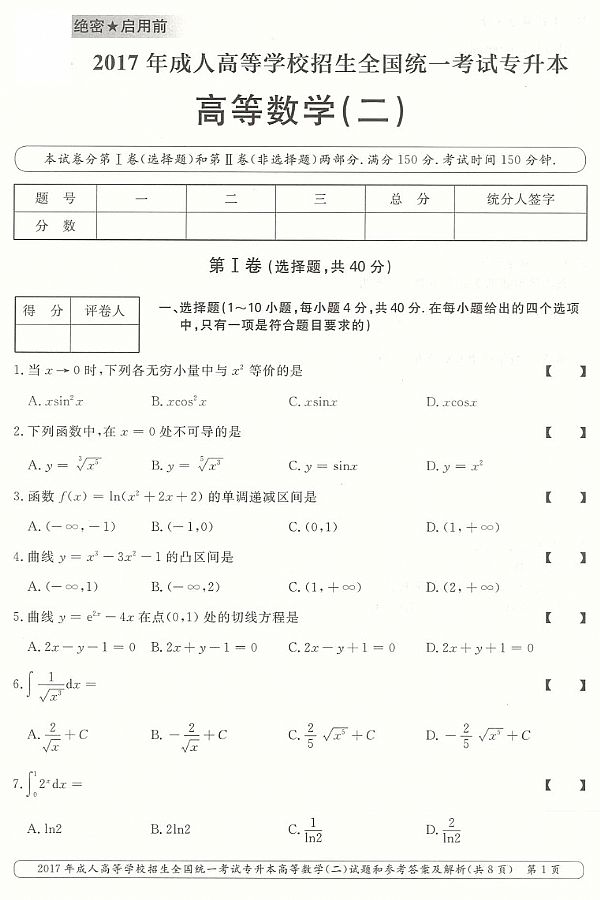 绝密★启用前
2017年成人高等学校招生全国统一考试专升本
高等数学(二)
本试卷分第Ⅰ卷(选择题)和第Ⅱ卷(非选择题)两部分.满分150分.考试时间150分钟.
题 号 一 二 三 总 分 统分人签字
分 数
第Ⅰ卷(选择题,共40分)
得 分 评卷人
一、选择题(1～10小题,每小题4分,共40分.在每小题给出的四个选项
中,只有一项是符合题目要求的)
1.当 x→0 时,下列各无穷小量中与 x² 等价的是 【 】
A. xsin²x B. xcos²x C. xsinx D. xcosx
2.下列函数中,在 x = 0 处不可导的是 【 】
A. y = ∛(x⁵) B. y = ⁵√(x³) C. y = sinx D. y = x²
3.函数 f(x) = ln(x² + 2x + 2) 的单调递减区间是 【 】
A. (−∞, −1) B. (−1,0) C. (0,1) D. (1, +∞)
4.曲线 y = x³ − 3x² − 1 的凸区间是 【 】
A. (−∞,1) B. (−∞,2) C. (1, +∞) D. (2, +∞)
5.曲线 y = e²ˣ − 4x 在点(0,1) 处的切线方程是 【 】
A. 2x − y − 1 = 0 B. 2x + y − 1 = 0 C. 2x − y + 1 = 0 D. 2x + y + 1 = 0
6. ∫ 1/√(x³) dx = 【 】
A. 2/√x + C B. − 2/√x + C C. 2/5 √(x⁵) + C D. − 2/5 √(x⁵) + C
7. ∫₀¹ 2ˣ dx = 【 】
A. ln2 B. 2ln2 C. 1/ln2 D. 2/ln2
2017年成人高等学校招生全国统一考试专升本高等数学(二)试题和参考答案及解析(共8页) 第1页